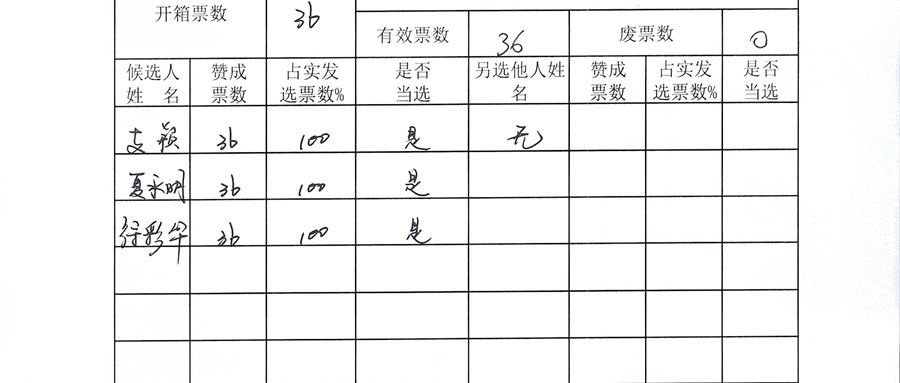 开箱票数 36
有效票数 36 废票数 0
候选人姓名 赞成票数 占实发选票数% 是否当选 另选他人姓名 赞成票数 占实发选票数% 是否当选
支颖 36 100 是 无
夏永明 36 100 是
徐彩华 36 100 是